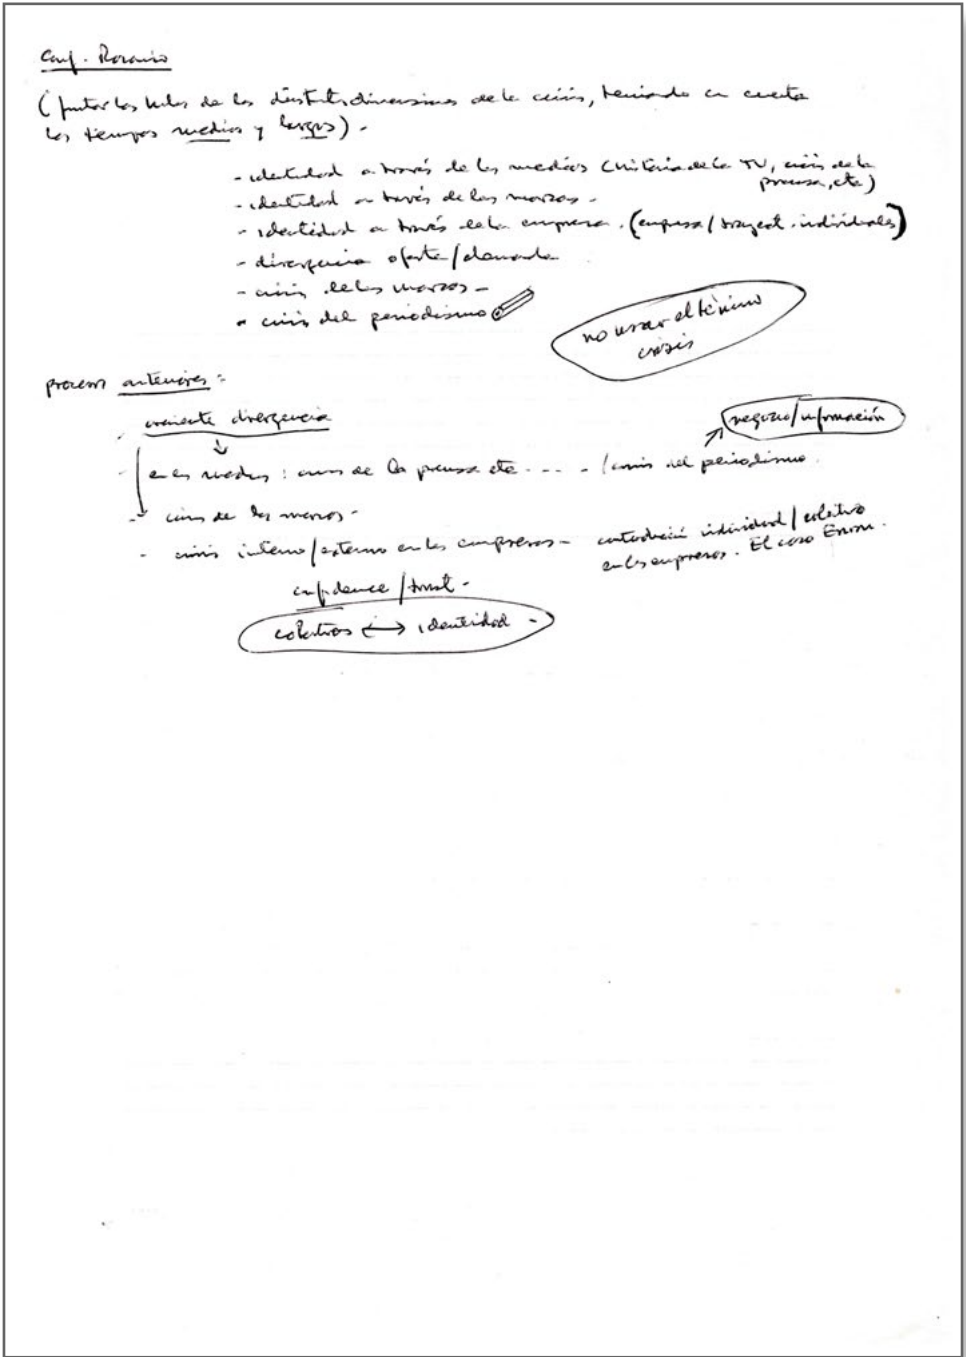 Conf. Rosario
( juntar los hilos de las distintas dimensiones de la crisis, teniendo en cuenta
los tiempos medios y largos) -
- identidad a través de los medios (historia de la TV, crisis de la
prensa, etc)
- identidad a través de las marcas -
- identidad a través de la empresa. (empresa / trayect. individuales)
- divergencia oferta/demanda
- crisis de las marcas -
- crisis del periodismo
no usar el término
crisis
procesos anteriores:
creciente divergencia
negocio/información
- en los medios: crisis de la prensa etc .... / crisis del periodismo.
- crisis de las marcas -
- crisis interno/externo en las empresas - contradicción individual/colectivo
en las empresas. El caso Enron.
confidence / trust -
colectivos ↔ identidad -